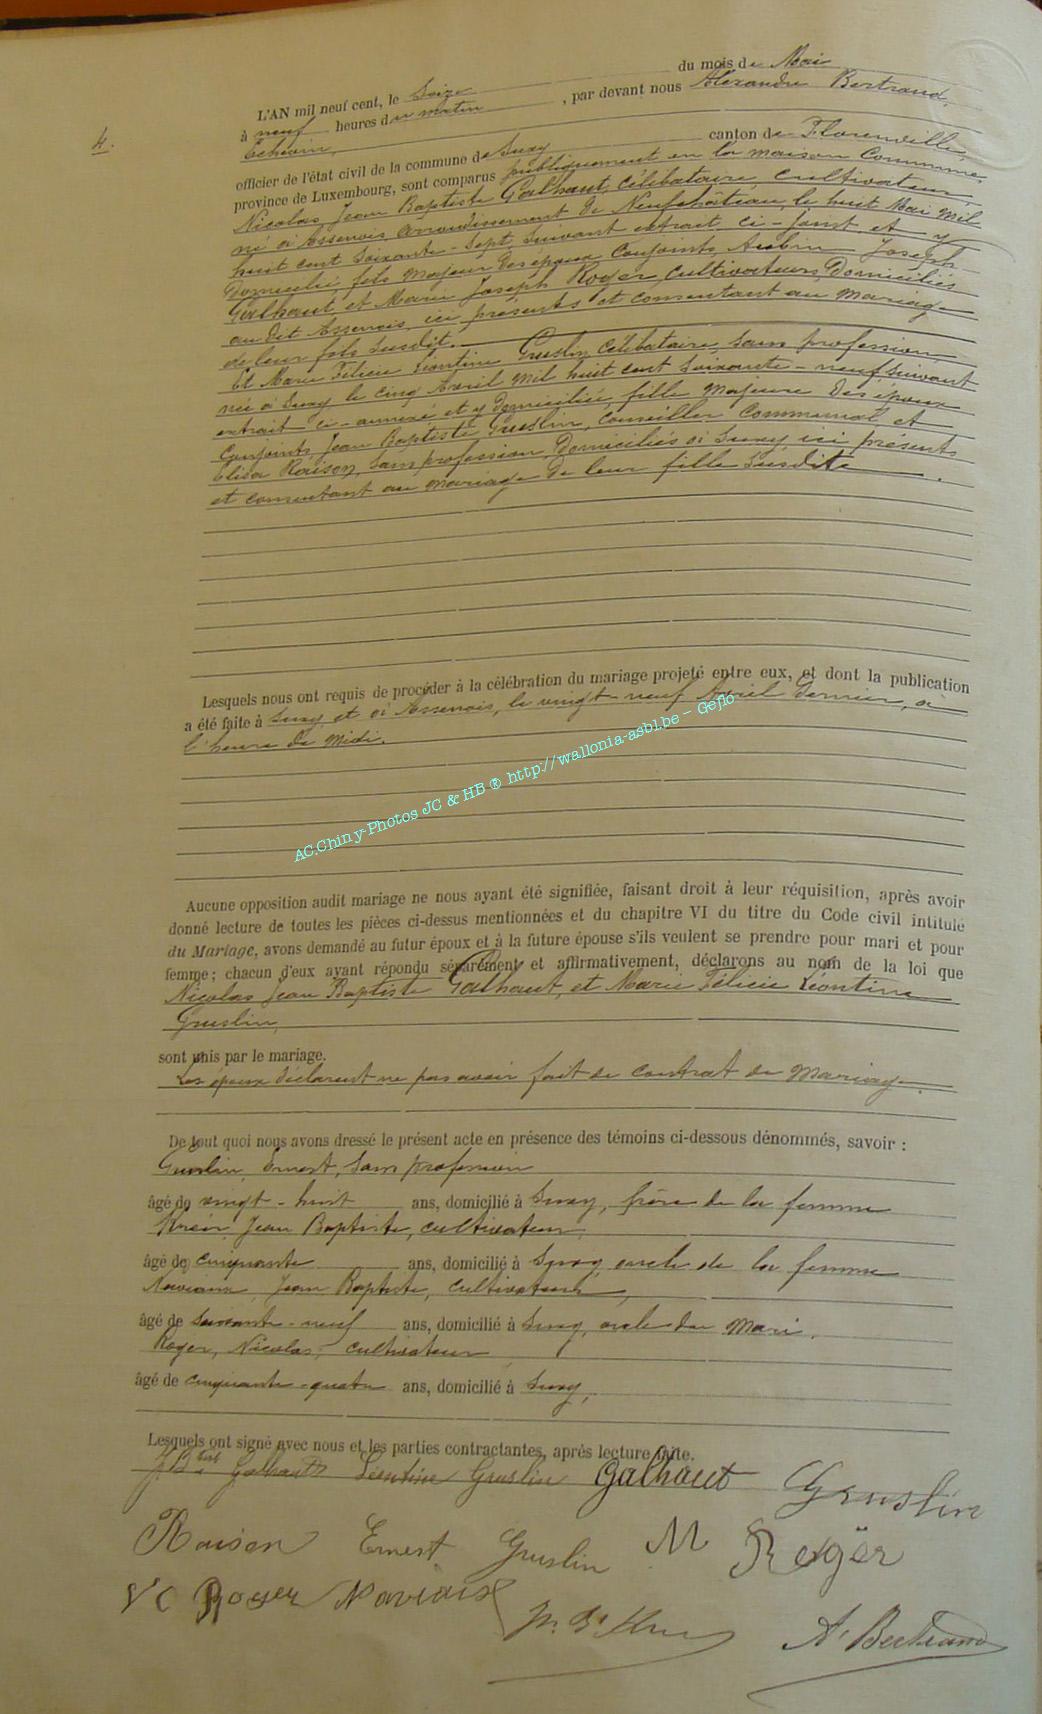 4.
L'AN mil neuf cent, le Seize du mois de Mai
à neuf heures du matin, par devant nous Alexandre Bertrand,
Echevin,
officier de l'état civil de la commune de Suxy canton de Florenville,
province de Luxembourg, sont comparus publiquement en la maison Commune,
Nicolas Jean Baptiste Galhaut, célibataire, cultivateur,
né à Assenois, arrondissement de Neufchâteau, le huit Mai mil
huit cent Soixante-Sept, Suivant extrait ci-joint et y
Domicilié, fils Majeur des époux Conjoints Aubin Joseph
Galhaut et Marie Joseph Roger, cultivateurs Domiciliés
au dit Assenois, ici présents et consentant au mariage
de leur fils susdit.
Et Marie Félicie Léontine Gruslin, Célibataire, Sans profession,
née à Suxy le cinq Avril Mil huit cent Soixante-neuf Suivant
extrait ci-annexé et y domiciliée, fille Majeure des époux
Conjoints Jean Baptiste Gruslin, Conseiller Communal et
Elisa Raison, Sans profession, Domiciliés à Suxy, ici présents
et consentant au mariage de leur fille Susdite.
Lesquels nous ont requis de procéder à la célébration du mariage projeté entre eux, et dont la publication
a été faite à Suxy et à Assenois, le vingt-neuf Avril Dernier, à
l'heure de Midi.
AC.Chiny-Photos JC & HB ® http://wallonia-asbl.be - Geflo
Aucune opposition audit mariage ne nous ayant été signifiée, faisant droit à leur réquisition, après avoir
donné lecture de toutes les pièces ci-dessus mentionnées et du chapitre VI du titre du Code civil intitulé
du Mariage, avons demandé au futur époux et à la future épouse s'ils veulent se prendre pour mari et pour
femme ; chacun d'eux ayant répondu séparément et affirmativement, déclarons au nom de la loi que
Nicolas Jean Baptiste Galhaut, et Marie Félicie Léontine
Gruslin,
sont unis par le mariage.
Les époux déclarent ne pas avoir fait de contrat de Mariage.
De tout quoi nous avons dressé le présent acte en présence des témoins ci-dessous dénommés, savoir :
Gruslin, Ernest, Sans profession
âgé de vingt-huit ans, domicilié à Suxy, frère de la femme
Jean Baptiste, cultivateur,
âgé de cinquante ans, domicilié à Suxy, oncle de la femme
Jean Baptiste, cultivateur,
âgé de Soixante-neuf ans, domicilié à Suxy, oncle du Mari.
Roger, Nicolas, cultivateur
âgé de cinquante-quatre ans, domicilié à Suxy,
Lesquels ont signé avec nous et les parties contractantes, après lecture faite.
Galhaut Léontine Gruslin Galhaut Gruslin
Raison Ernest Gruslin M Roger
Roger
A. Bertrand